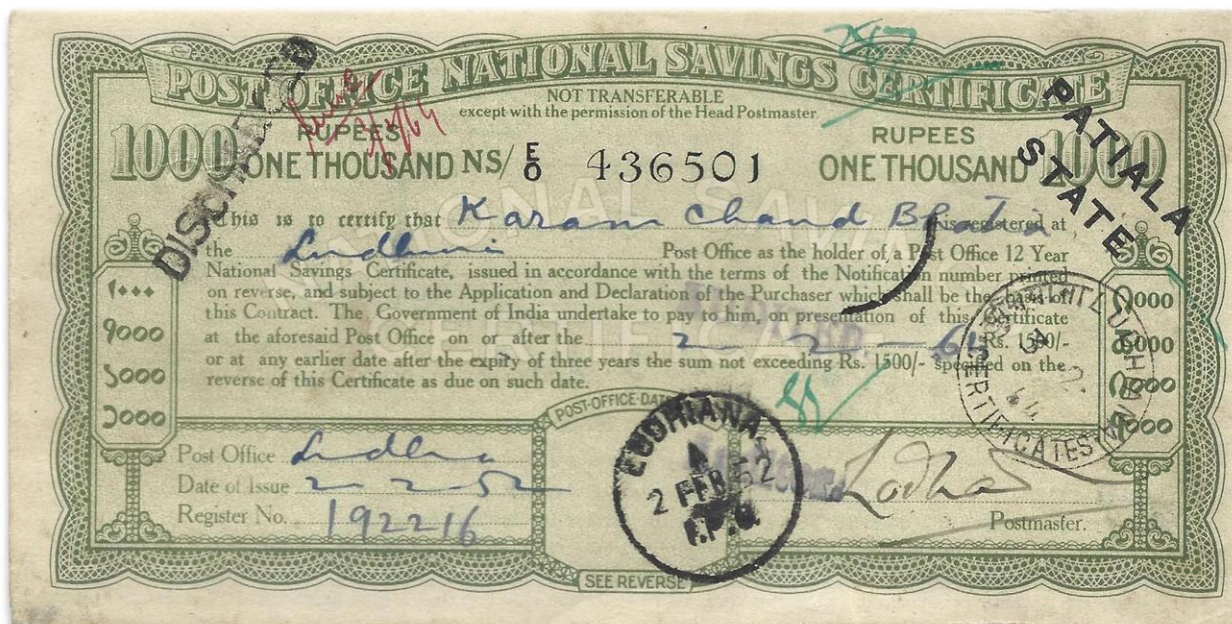 POST OFFICE NATIONAL SAVINGS CERTIFICATE
NOT TRANSFERABLE
except with the permission of the Head Postmaster
1000 RUPEES ONE THOUSAND NS/ E/0 436501 RUPEES ONE THOUSAND 1000
DISCHARGED
PATIALA
STATE
This is to certify that Karam Chand Bhatia is registered at
the Ludhiana Post Office as the holder of a Post Office 12 Year
National Savings Certificate, issued in accordance with the terms of the Notification number printed
on reverse, and subject to the Application and Declaration of the Purchaser which shall be the basis of
this Contract. The Government of India undertake to pay to him, on presentation of this Certificate
at the aforesaid Post Office on or after the 2-2-64 Rs. 1500/-
or at any earlier date after the expiry of three years the sum not exceeding Rs. 1500/- specified on the
reverse of this Certificate as due on such date.
POST-OFFICE-DATE
Post Office Ludhiana
Date of Issue 2-2-52
Register No. 192216
LUDHIANA
2 FEB 52
CERTIFICATES
Postmaster.
SEE REVERSE